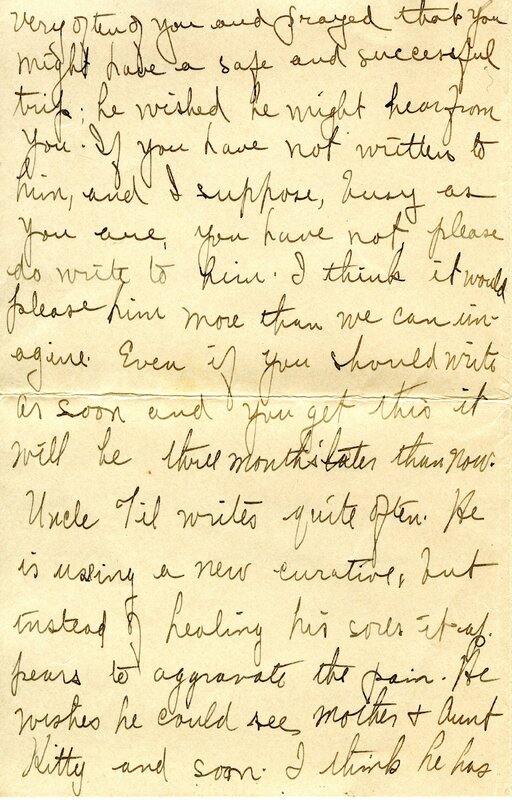 very often of you and prayed that you
might have a safe and successful
trip; he wished he might hear from
you. If you have not written to
him, and I suppose, busy as
you are, you have not, please
do write to him. I think it would
please him more than we can im-
agine. Even if you should write
as soon and you get this it
will be three months later than now.
Uncle Til writes quite often. He
is using a new curative, but
instead of healing his sores it ap-
pears to aggravate the pain. He
wishes he could see mother & Aunt
Kitty and soon. I think he has